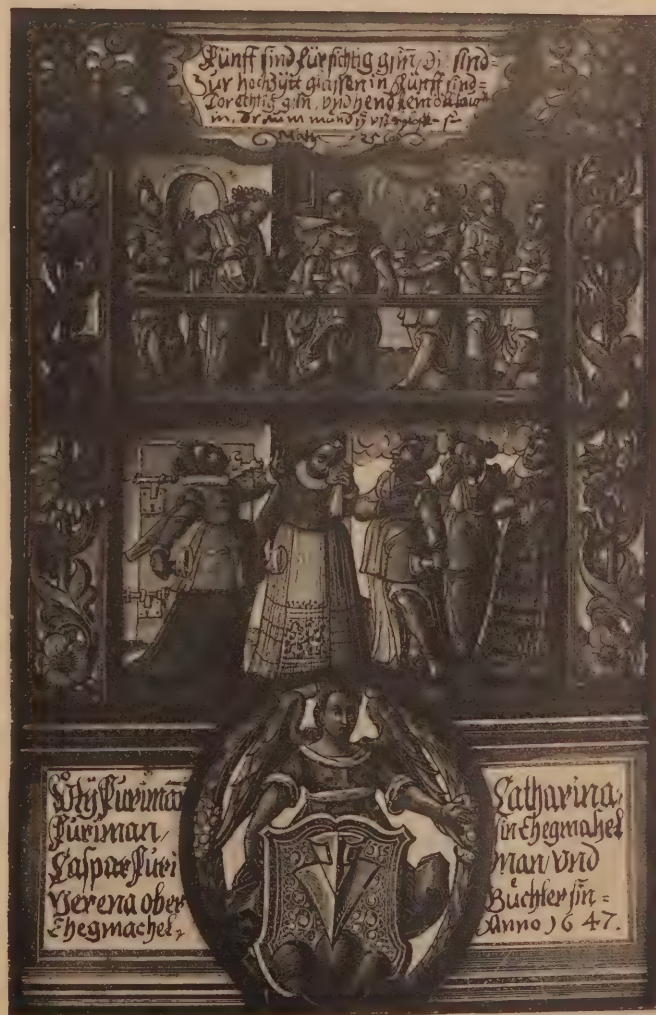 Fünff sind fürsichtig gsin, Di sind=
Zur hochzÿtt glassen in Fünff sind=
Torechtig gsin, vnd hend kein öll
in.
Math 25 Cap
Püriman
Püriman,
Caspar Püri
Verena ober
Ehegmachel,
Catharina,
sin Ehegmahel
man, vnd
Büchler sin=
Anno 1647.